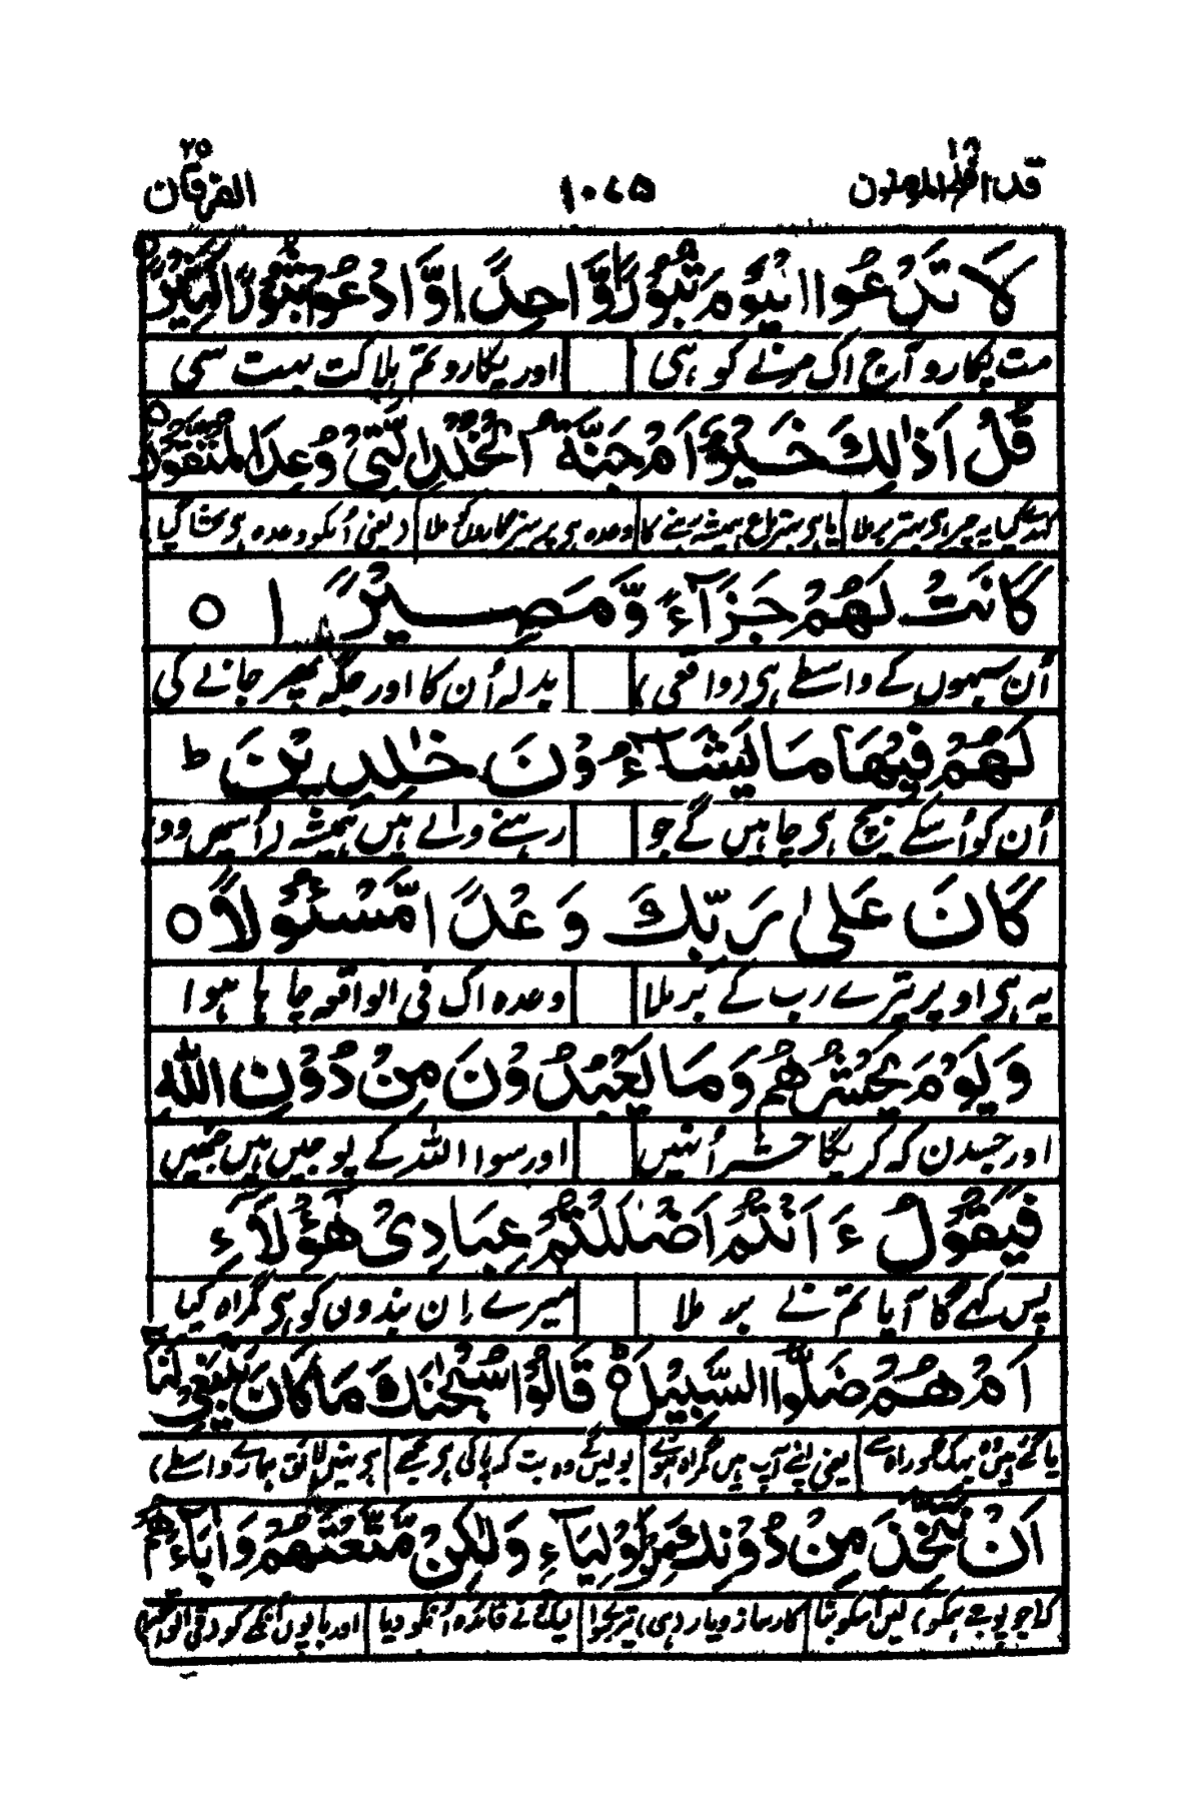 قد افلح المومنون ١٨ ١٠٧٥ الفرقان ٢٥
لَا تَدْعُوا الْيَوْمَ ثُبُوْرًا وَّاحِدًا وَّادْعُوْا ثُبُوْرًا كَثِيْرًا
مت پکارو آج اک مرنے کو ہی اور پکارو تم ہلاکت بہت سی
قُلْ اَذٰلِكَ خَيْرٌ اَمْ جَنَّةُ الْخُلْدِ الَّتِيْ وُعِدَ الْمُتَّقُوْنَ
یہ بہتر برملا یا ہی بہتر باغ ہمیشہ رہنے کا وعدہ ہی پرہیزگاروں کو ملا (یعنی اُنکو وعدہ ہی بخشا گیا)
كَانَتْ لَهُمْ جَزَآءً وَّمَصِيْرًا ○
اُن سبھوں کے واسطے ہی (واقعی) بدلہ اُن کا اور جگہ پھر جانے کی
لَهُمْ فِيْهَا مَا يَشَآءُوْنَ خٰلِدِيْنَ ط
اُن کو اُسکے بیچ ہی چاہیں گے جو رہنے والے ہیں ہمیشہ (اُسمیں وو)
كَانَ عَلٰى رَبِّكَ وَعْدًا مَّسْئُوْلًا ○
یہ ہی اوپر تیرے رب کے برملا وعدہ اک فی الواقعہ چاہا ہوا
وَيَوْمَ يَحْشُرُهُمْ وَمَا يَعْبُدُوْنَ مِنْ دُوْنِ اللهِ
اور جسدن کہ کریگا حشر اُنہیں اور سوا اللہ کے پوجیں ہیں جنہیں
فَيَقُوْلُ ءَاَنْتُمْ اَضْلَلْتُمْ عِبَادِيْ هٰؤُلَآءِ
پس کہے گا آیا تم نے برملا میرے اِن بندوں کو ہی گمراہ کیا
اَمْ هُمْ ضَلُّوا السَّبِيْلَ ○ قَالُوْا سُبْحٰنَكَ مَا كَانَ يَنْبَغِيْ لَنَا
یا گئے ہیں وہ بہک خود راہ سے یعنی اپنے آپ ہیں گمراہ ہوئے بولیں گے وہ بت کہ پاکی ہی تجھے ہی نہیں لائق ہمارے واسطے
اَنْ نَّتَّخِذَ مِنْ دُوْنِكَ مِنْ اَوْلِيَآءَ وَلٰكِنْ مَّتَّعْتَهُمْ وَاٰبَآءَهُمْ
کارساز و یار (ہی) تیرے سوا لیک تو نے فائدہ اُنکو دیا اور باپوں اُنکے کو